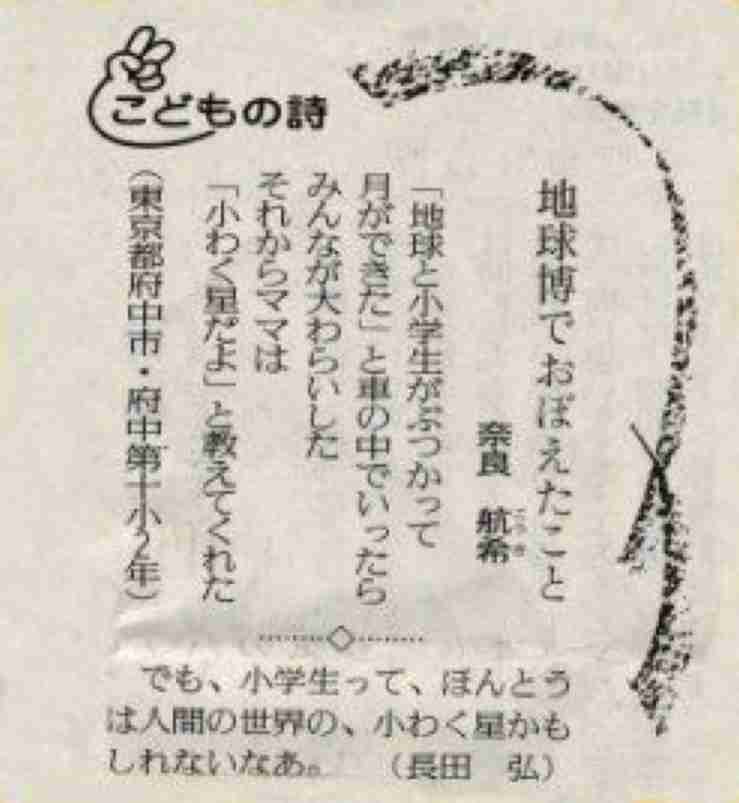 こどもの詩
地球博でおぼえたこと
奈良　航希
こうき
「地球と小学生がぶつかって
月ができた」と車の中でいったら
みんなが大わらいした
それからママは
「小わく星だよ」と教えてくれた
（東京都府中市・府中第十小２年）
でも、小学生って、ほんとう
は人間の世界の、小わく星かも
しれないなあ。　（長田　弘）